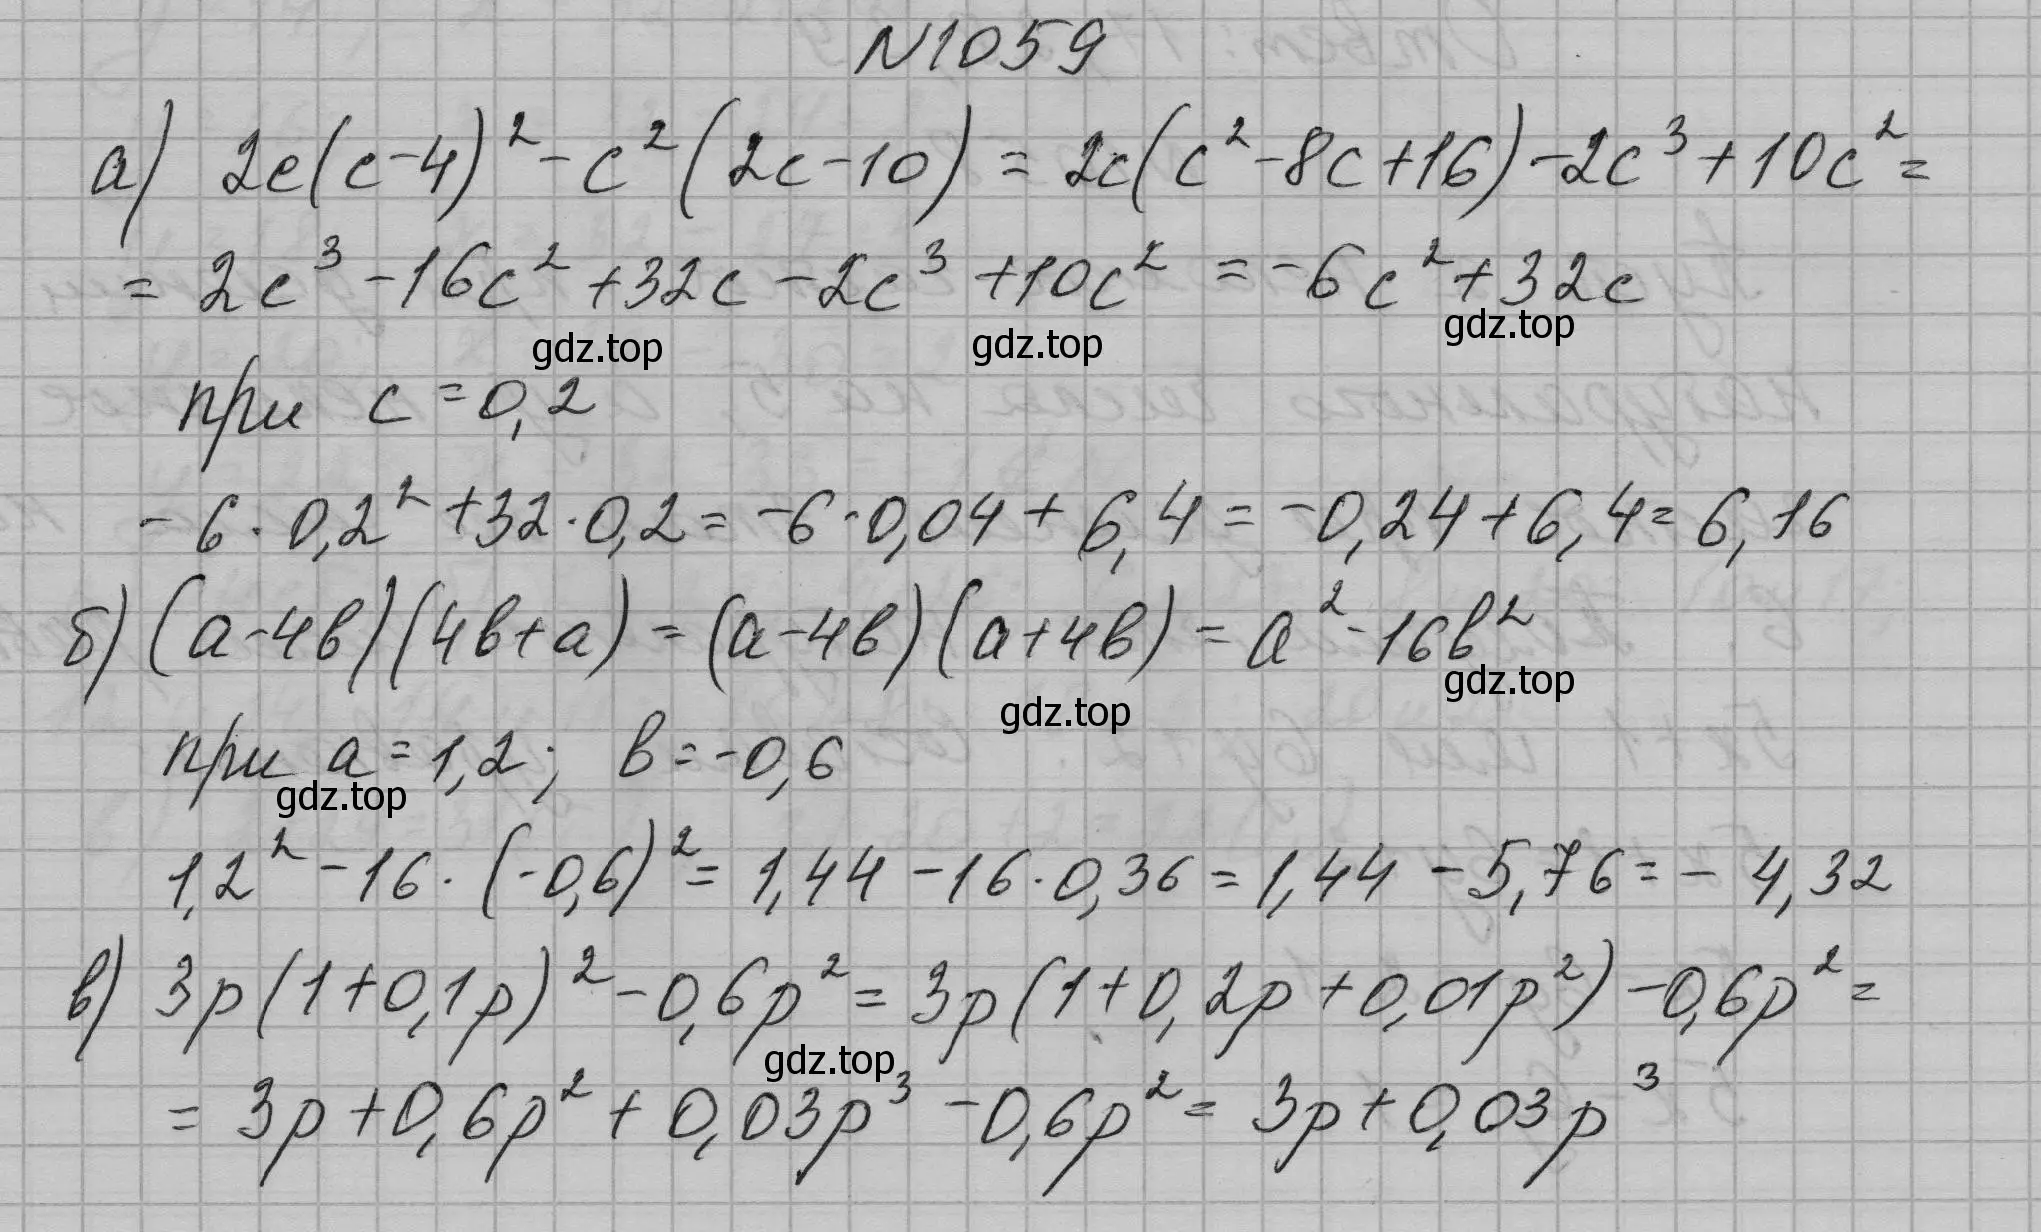 N1059
а) 2c(c-4)² - c²(2c-10) = 2c(c²-8c+16) - 2c³ + 10c² =
= 2c³ - 16c² + 32c - 2c³ + 10c² = -6c² + 32c
gdz.top gdz.top gdz.top
при c = 0,2
-6 · 0,2² + 32 · 0,2 = -6 · 0,04 + 6,4 = -0,24 + 6,4 = 6,16
б) (a-4b)(4b+a) = (a-4b)(a+4b) = a² - 16b²
gdz.top gdz.top
при a = 1,2; b = -0,6
gdz.top
1,2² - 16 · (-0,6)² = 1,44 - 16 · 0,36 = 1,44 - 5,76 = - 4,32
в) 3p(1+0,1p)² - 0,6p² = 3p(1+0,2p+0,01p²) - 0,6p² =
gdz.top
= 3p + 0,6p² + 0,03p³ - 0,6p² = 3p + 0,03p³